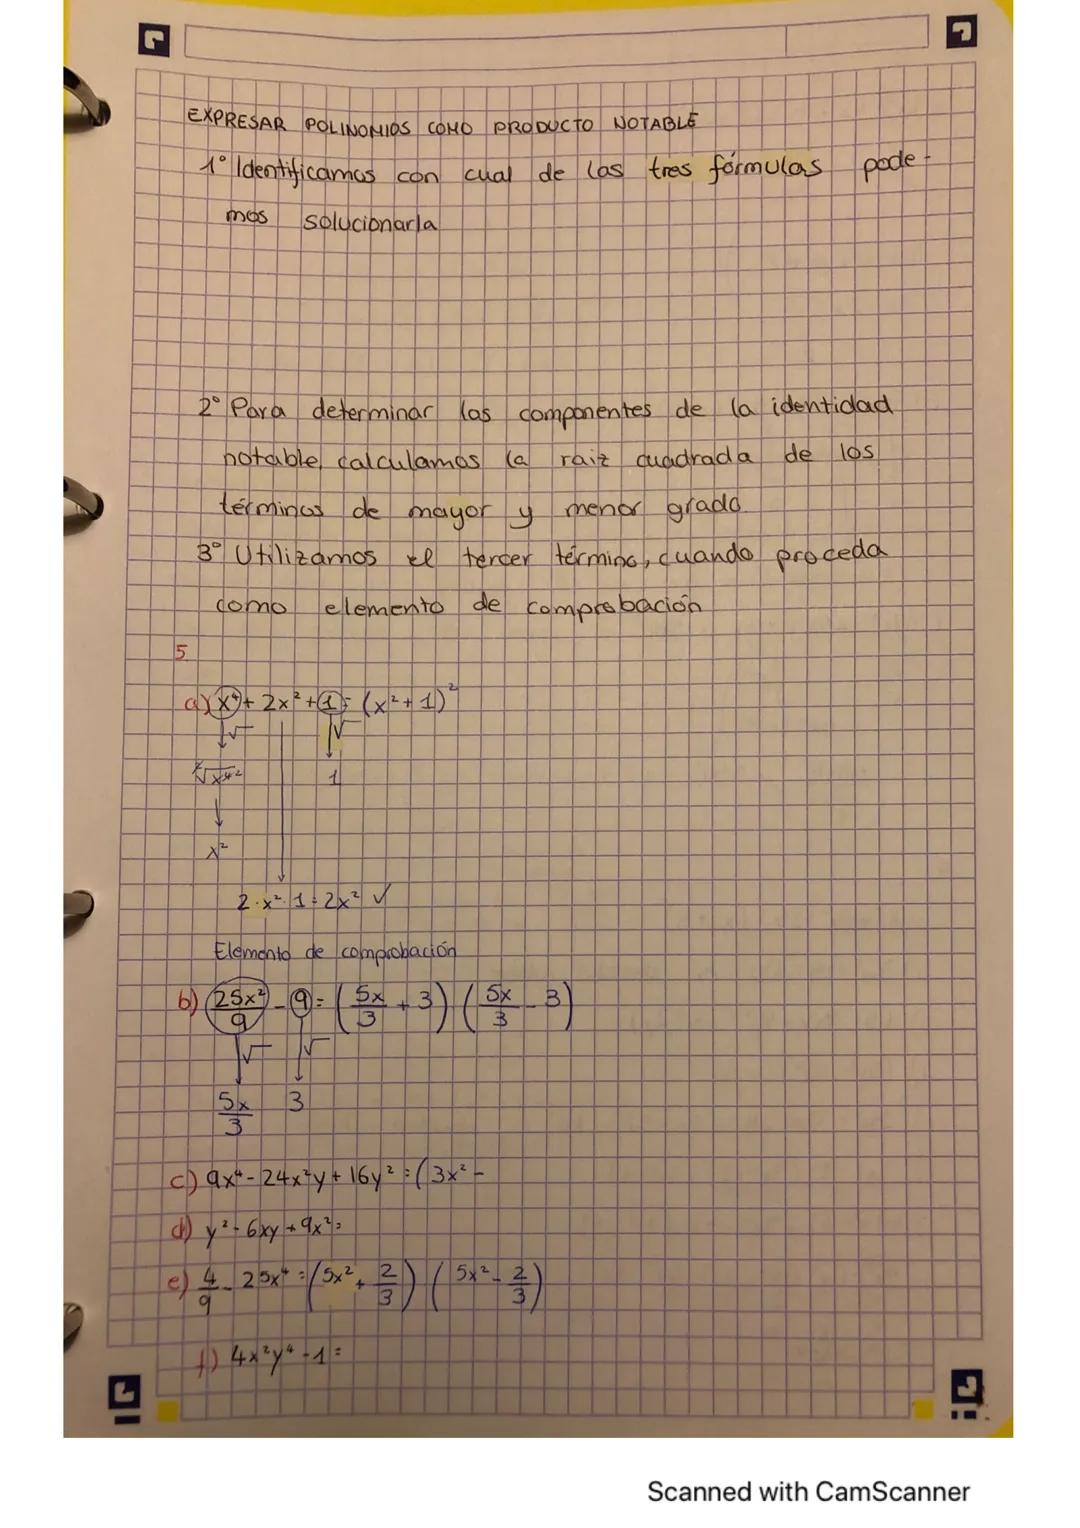 EXPRESAR POLINOMIOS COMO PRODUCTO NOTABLE
1º Identificamos con cual de las tres fórmulas pode-
mos solucionarla
2º Para determinar las componentes de la identidad
notable, calculamos la raiz cuadrada de los
términos de mayor y menor grado
3º Utilizamos el tercer término, cuando proceda
como elemento de comprobación
5
a) x⁴ + 2x² + 1 = (x² + 1)²
√ √
²√x⁴² 1
x²
2·x²·1 = 2x² ✓
Elemento de comprobación
b) 25x²/9 - 9 = (5x/3 + 3) (5x/3 - 3)
√ √
5x/3 3
c) 9x⁴ - 24x²y + 16y² = (3x² -
d) y² - 6xy + 9x² =
e) 4/9 - 25x⁴ = (5x² + 2/3) (5x² - 2/3)
f) 4x²y⁴ - 1 =
Scanned with CamScanner